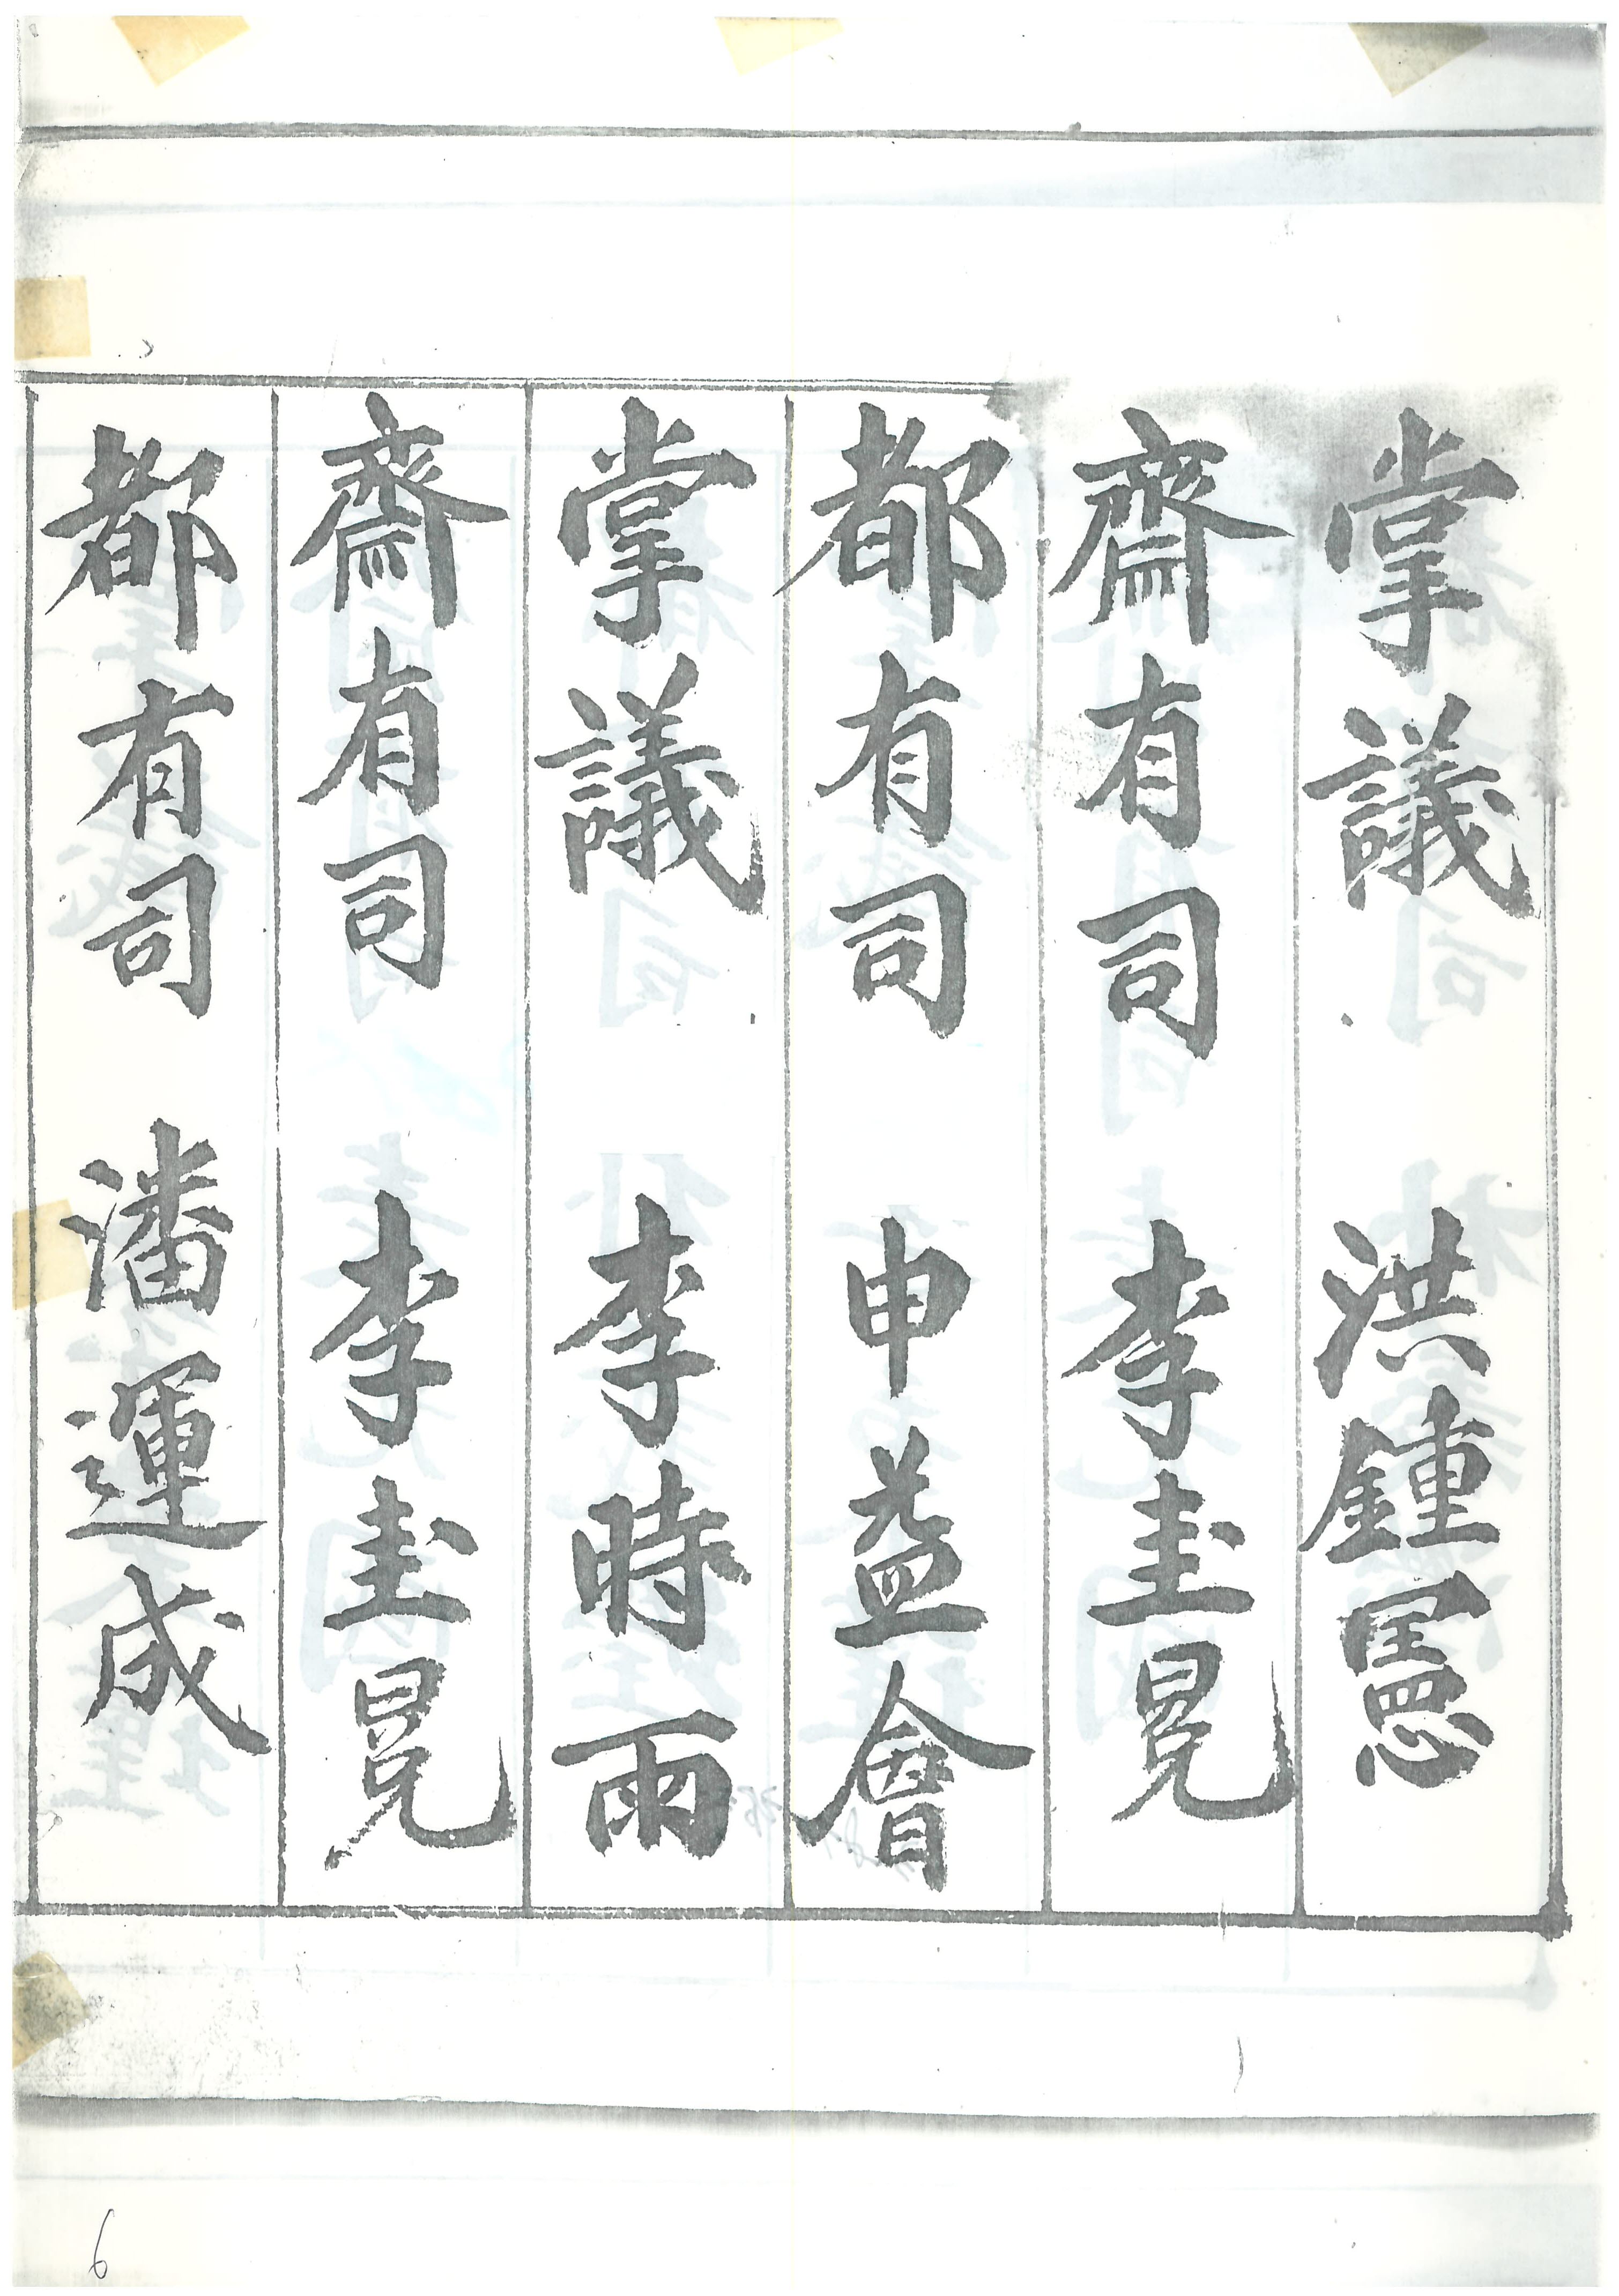 掌議 洪鍾憲
齋有司 李圭冕
都有司 申益會
掌議 李時雨
齋有司 李圭冕
都有司 潘運成
6